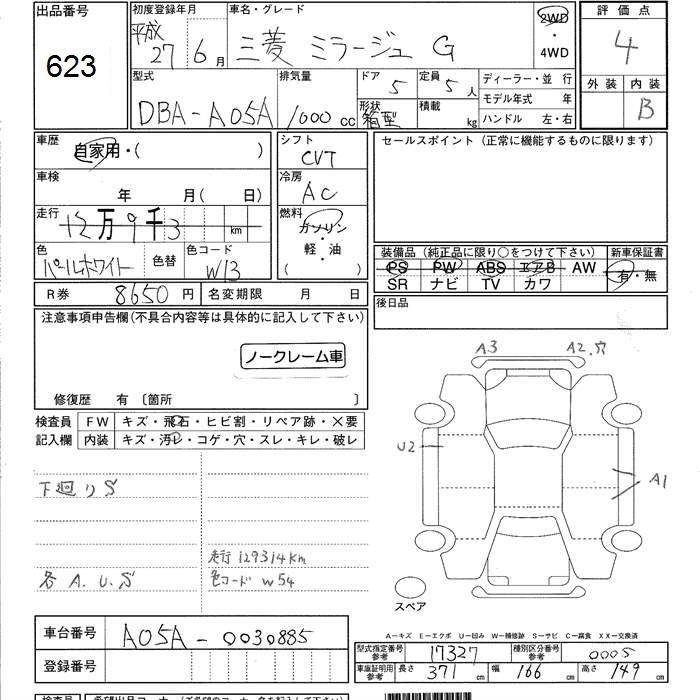 出品番号
623
初度登録年月
平成
27 6月
車名・グレード
三菱 ミラージュ G
2WD
・
4WD
評価点
4
外装 内装
B
型式
DBA-A05A
排気量
1000 cc
ドア 5
形状 箱型
定員 5人
積載 kg
ディーラー・並 行
モデル年式 年
ハンドル 左・右
車歴
自家用・( )
シフト
CVT
セールスポイント(正常に機能するものに限ります)
車検
年 月( 日)
冷房
AC
走行 12万9千3 km
燃料
ガソリン
・
軽・油
( )
色
パールホワイト
色替
色コード
W13
装備品(純正品に限り○をつけて下さい)
新車保証書
PS PW ABS エアB AW
SR ナビ TV カワ
有・無
R券 8650円 名変期限 月 日
後日品
注意事項申告欄(不具合内容等は具体的に記入して下さい)
ノークレーム車
修復歴 有〔箇所 〕
検査員
記入欄
FW キズ・飛石・ヒビ割・リペア跡・×要
内装 キズ・汚レ・コゲ・穴・スレ・キレ・破レ
A3
A2.穴
U2
A1
下廻りS
走行 129314km
各 A.U.S
色コード W54
スペア
A-キズ E-エクボ U-凹み W-補修跡 S-サビ C-腐食 XX-交換済
車台番号 A05A-0030885
登録番号
型式指定番号
参考
17327
種別区分番号
参考
0005
車庫証明用
参考
長さ 371 cm 幅 166 cm 高さ 149 cm